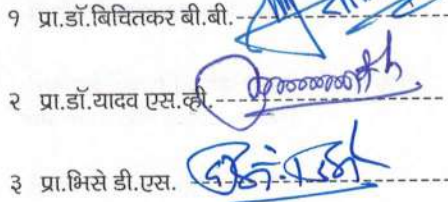 १ प्रा.डॉ.बिचितकर बी.बी.
२ प्रा.डॉ.यादव एस.व्ही.
३ प्रा.भिसे डी.एस.